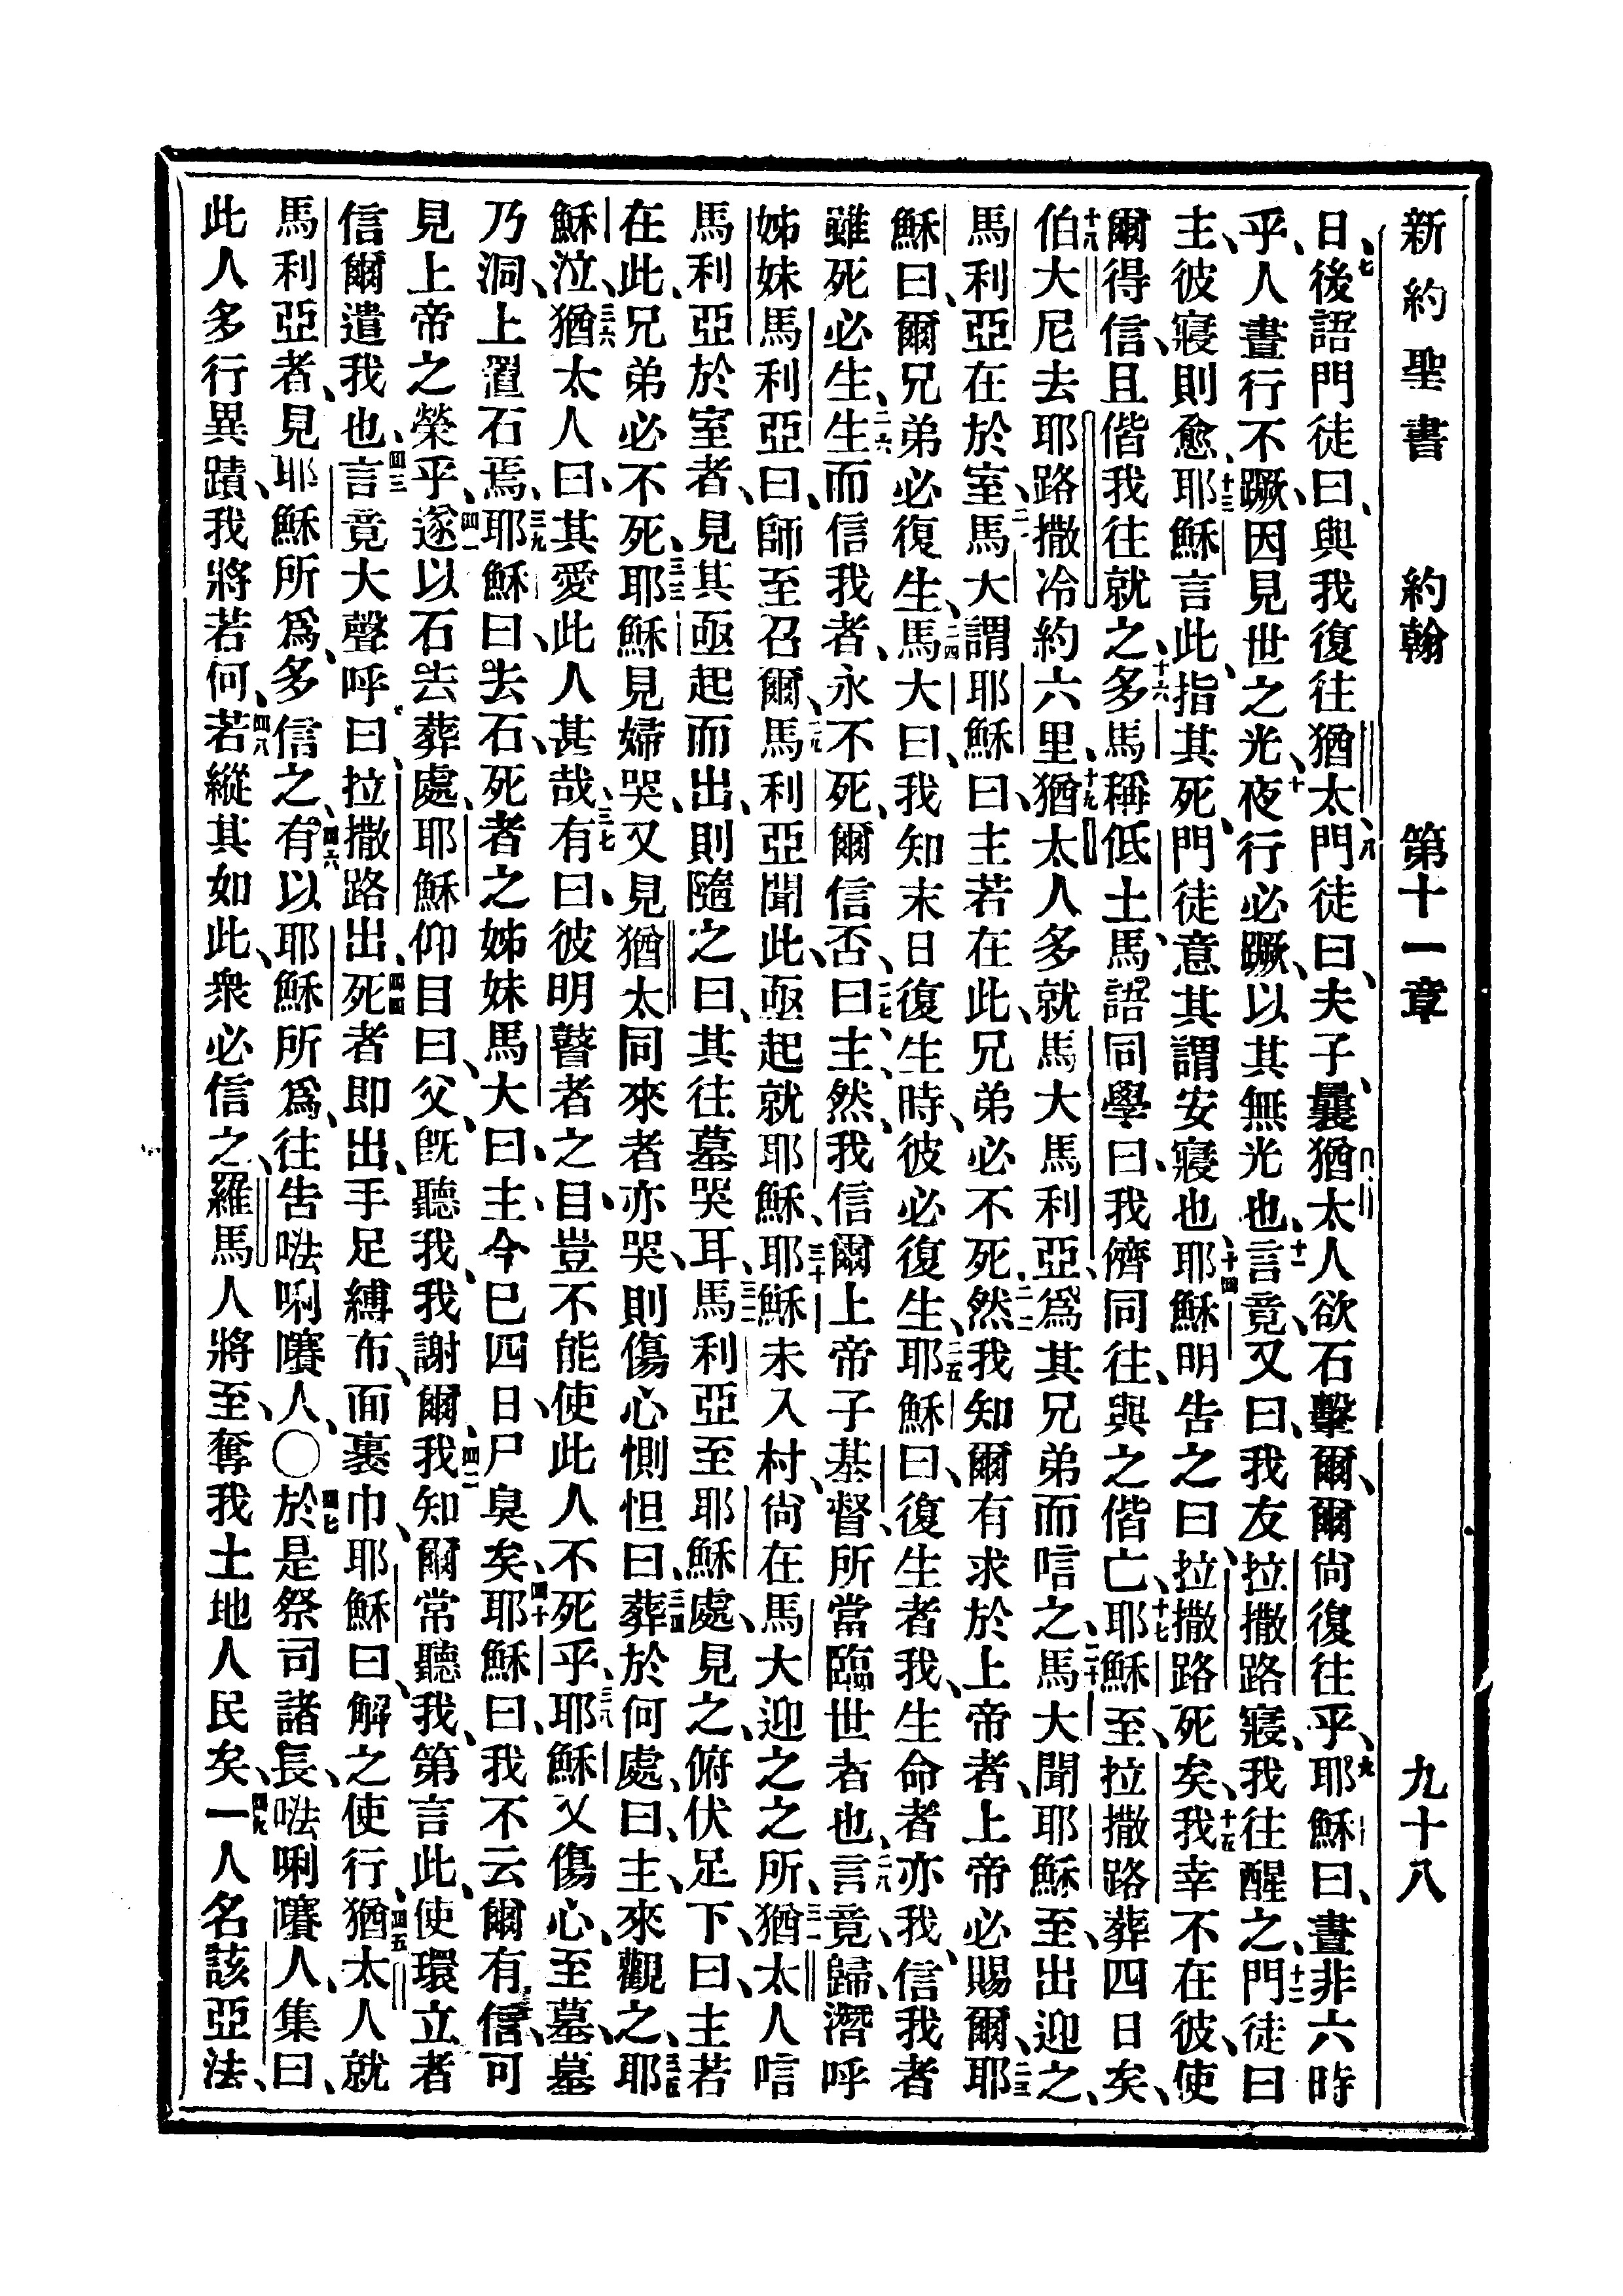 新約聖書 約翰 第十一章 九十八
日、七後語門徒曰、與我復往猶太、八門徒曰、夫子、曩猶太人欲石擊爾、爾尙復往乎、九耶穌曰、晝非六時
乎、人晝行不蹶、因見世之光、十夜行必蹶、以其無光也、十一言竟、又曰、我友拉撒路寢、我往醒之、十二門徒曰
主、彼寢則愈、十三耶穌言此、指其死、門徒意其謂安寢也、十四耶穌明告之曰、拉撒路死矣、十五我幸不在彼、使
爾得信、且偕我往就之、十六多馬稱低土馬、語同學曰、我儕同往、與之偕亡、十七耶穌至、拉撒路葬四日矣、
十八伯大尼去耶路撒冷約六里、十九猶太人多就馬大馬利亞、爲其兄弟而唁之、二十馬大聞耶穌至、出迎之、
馬利亞在於室、二一馬大謂耶穌曰、主若在此、兄弟必不死、二二然我知爾有求於上帝者、上帝必賜爾、二三耶
穌曰、爾兄弟必復生、二四馬大曰、我知末日復生時、彼必復生、二五耶穌曰、復生者我、生命者亦我、信我者
雖死必生、二六生而信我者、永不死、爾信否、二七曰、主、然、我信爾上帝子基督、所當臨世者也、二八言竟、歸、潛呼
姊妹馬利亞曰、師至召爾、二九馬利亞聞此、亟起就耶穌、三十耶穌未入村、尙在馬大迎之之所、三一猶太人唁
馬利亞於室者、見其亟起而出、則隨之曰、其往墓哭耳、三二馬利亞至耶穌處、見之、俯伏足下、曰、主若
在此、兄弟必不死、三三耶穌見婦哭、又見猶太同來者亦哭、則傷心惻怛曰、三四葬於何處、曰、主、來觀之、三五耶
穌泣、三六猶太人曰、其愛此人甚哉、三七有曰、彼明瞽者之目、豈不能使此人不死乎、三八耶穌又傷心、至墓、墓
乃洞、上置石焉、三九耶穌曰、去石、死者之姊妹馬大曰、主、今已四日、尸臭矣、四十耶穌曰、我不云爾有信、可
見上帝之榮乎、四一遂以石去葬處、耶穌仰目曰、父、旣聽我、我謝爾、四二我知爾常聽我、第言此、使環立者
信爾遣我也、四三言竟、大聲呼曰、拉撒路出、四四死者即出、手足縛布、面裹巾、耶穌曰、解之使行、四五猶太人就
馬利亞者、見耶穌所爲、多信之、四六有以耶穌所爲、往告𠵽唎㘔人、〇四七於是祭司諸長、𠵽唎㘔人、集曰、
此人多行異蹟、我將若何、四八若縱其如此、衆必信之、羅馬人將至、奪我土地人民矣、四九一人名該亞法、